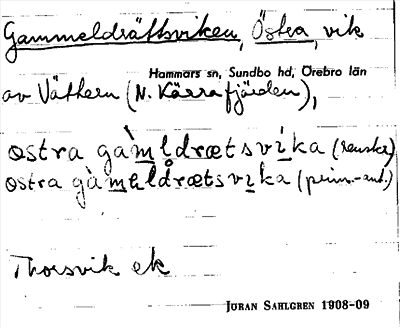 Gammeldrättsviken, Östra, vik
Hammars sn, Sundbo hd, Örebro län
av Vättern (N. Kärrafjärden),
ostra gàml̥drætsvika (svenska)
ostra gàməldrætsvika (prim.-ant.)
Thorsvik ek
JÖRAN SAHLGREN 1908-09